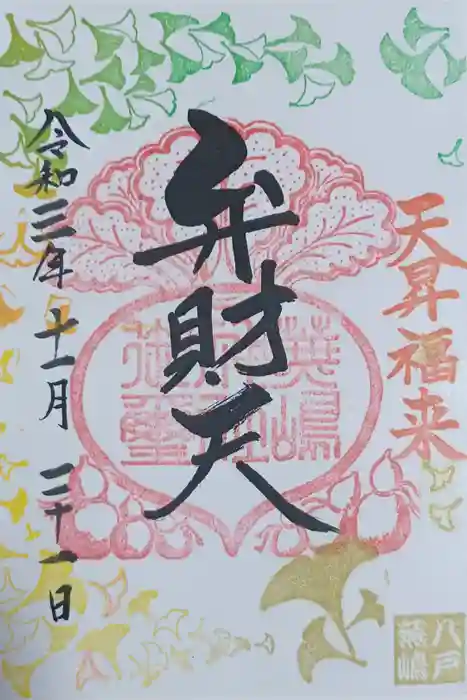 天昇福来
弁財天
蕪嶋
神社
御璽
令和三年十一月二十一日
八戸
蕪嶋